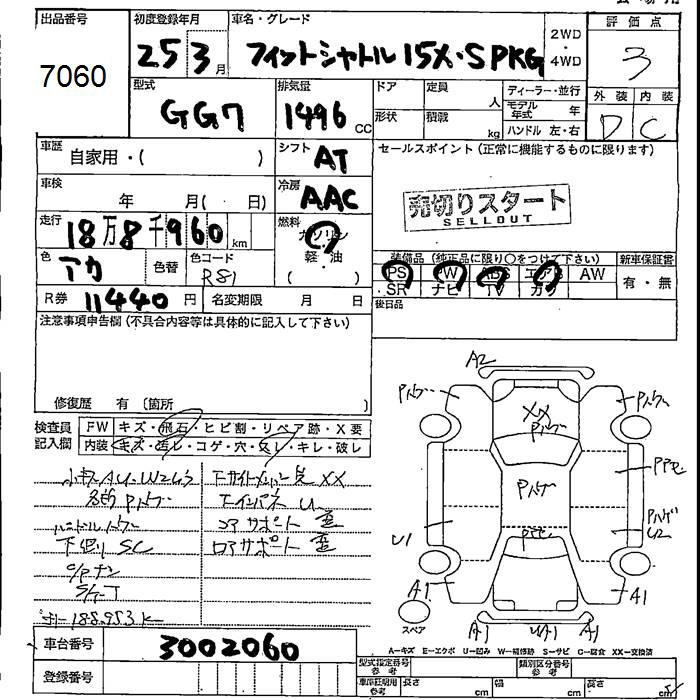 出品番号
7060
初度登録年月
25 3月
車名・グレード
フィットシャトル 15X・S PKG
2WD
・
4WD
評価点
3
型式
GG7
排気量
1496 cc
ドア
定員
人
形状
積載
kg
ディーラー・並行
モデル年式 年
ハンドル 左・右
外装 内装
D C
車歴
自家用・( )
シフト
AT
セールスポイント(正常に機能するものに限ります)
売切りスタート
SELLOUT
車検
年 月( 日)
冷房
AAC
走行
18万8千960 km
燃料
ガソリン
軽・油
( )
色
アカ
色替
色コード
R81
装備品(純正品に限り○をつけて下さい)
PS PW ABS エアB AW
SR ナビ TV カワ
新車保証書
有・無
R券 11440 円
名変期限 月 日
後日品
注意事項申告欄(不具合内容等は具体的に記入して下さい)
修復歴 有(箇所 )
検査員記入欄
FW キズ・飛石・ヒビ割・リペア跡・X要
内装 キズ・汚レ・コゲ・穴・スレ・キレ・破レ
小キズAU・W263
各部Pハゲ
下回りSC
エアサポート 歪
ロアサポート 歪
188.953k
A2
XX
Pハゲ
Pハゲ
U1
U2
A1
A1
A1
A1
スペア
車台番号
3002060
登録番号
A=キズ E=エクボ U=凹み W=補修跡 S=サビ C=腐食 XX=交換済
型式指定番号
参考
類別区分番号
参考
車庫証明用
参考
長さ cm
幅 cm
高さ cm